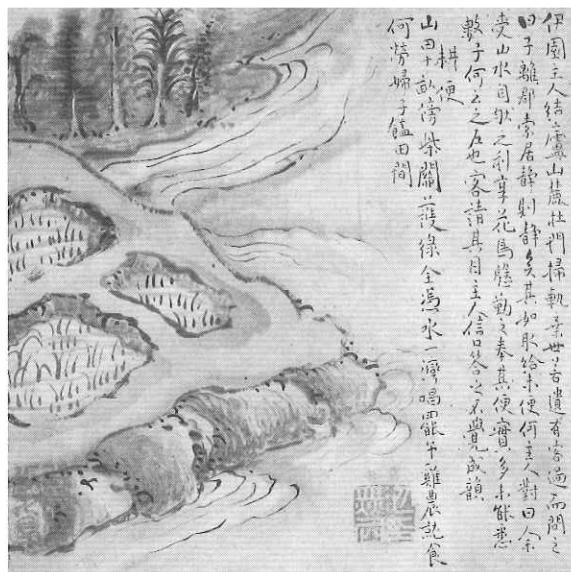 伊園主人結廬山麓杜門掃軌棄世若遺有客過而問之
曰子離群索居靜則靜矣其如取給未便何主人對曰余
受山水自然之利享花鳥慇勤之奉其便實多未能悉
數子何云之左也客請其目主人信口答之不覺成韻
耕便
山田十畝傍柴關護綠全憑水一灣唱罷午雞農就食
何勞婦子饁田間